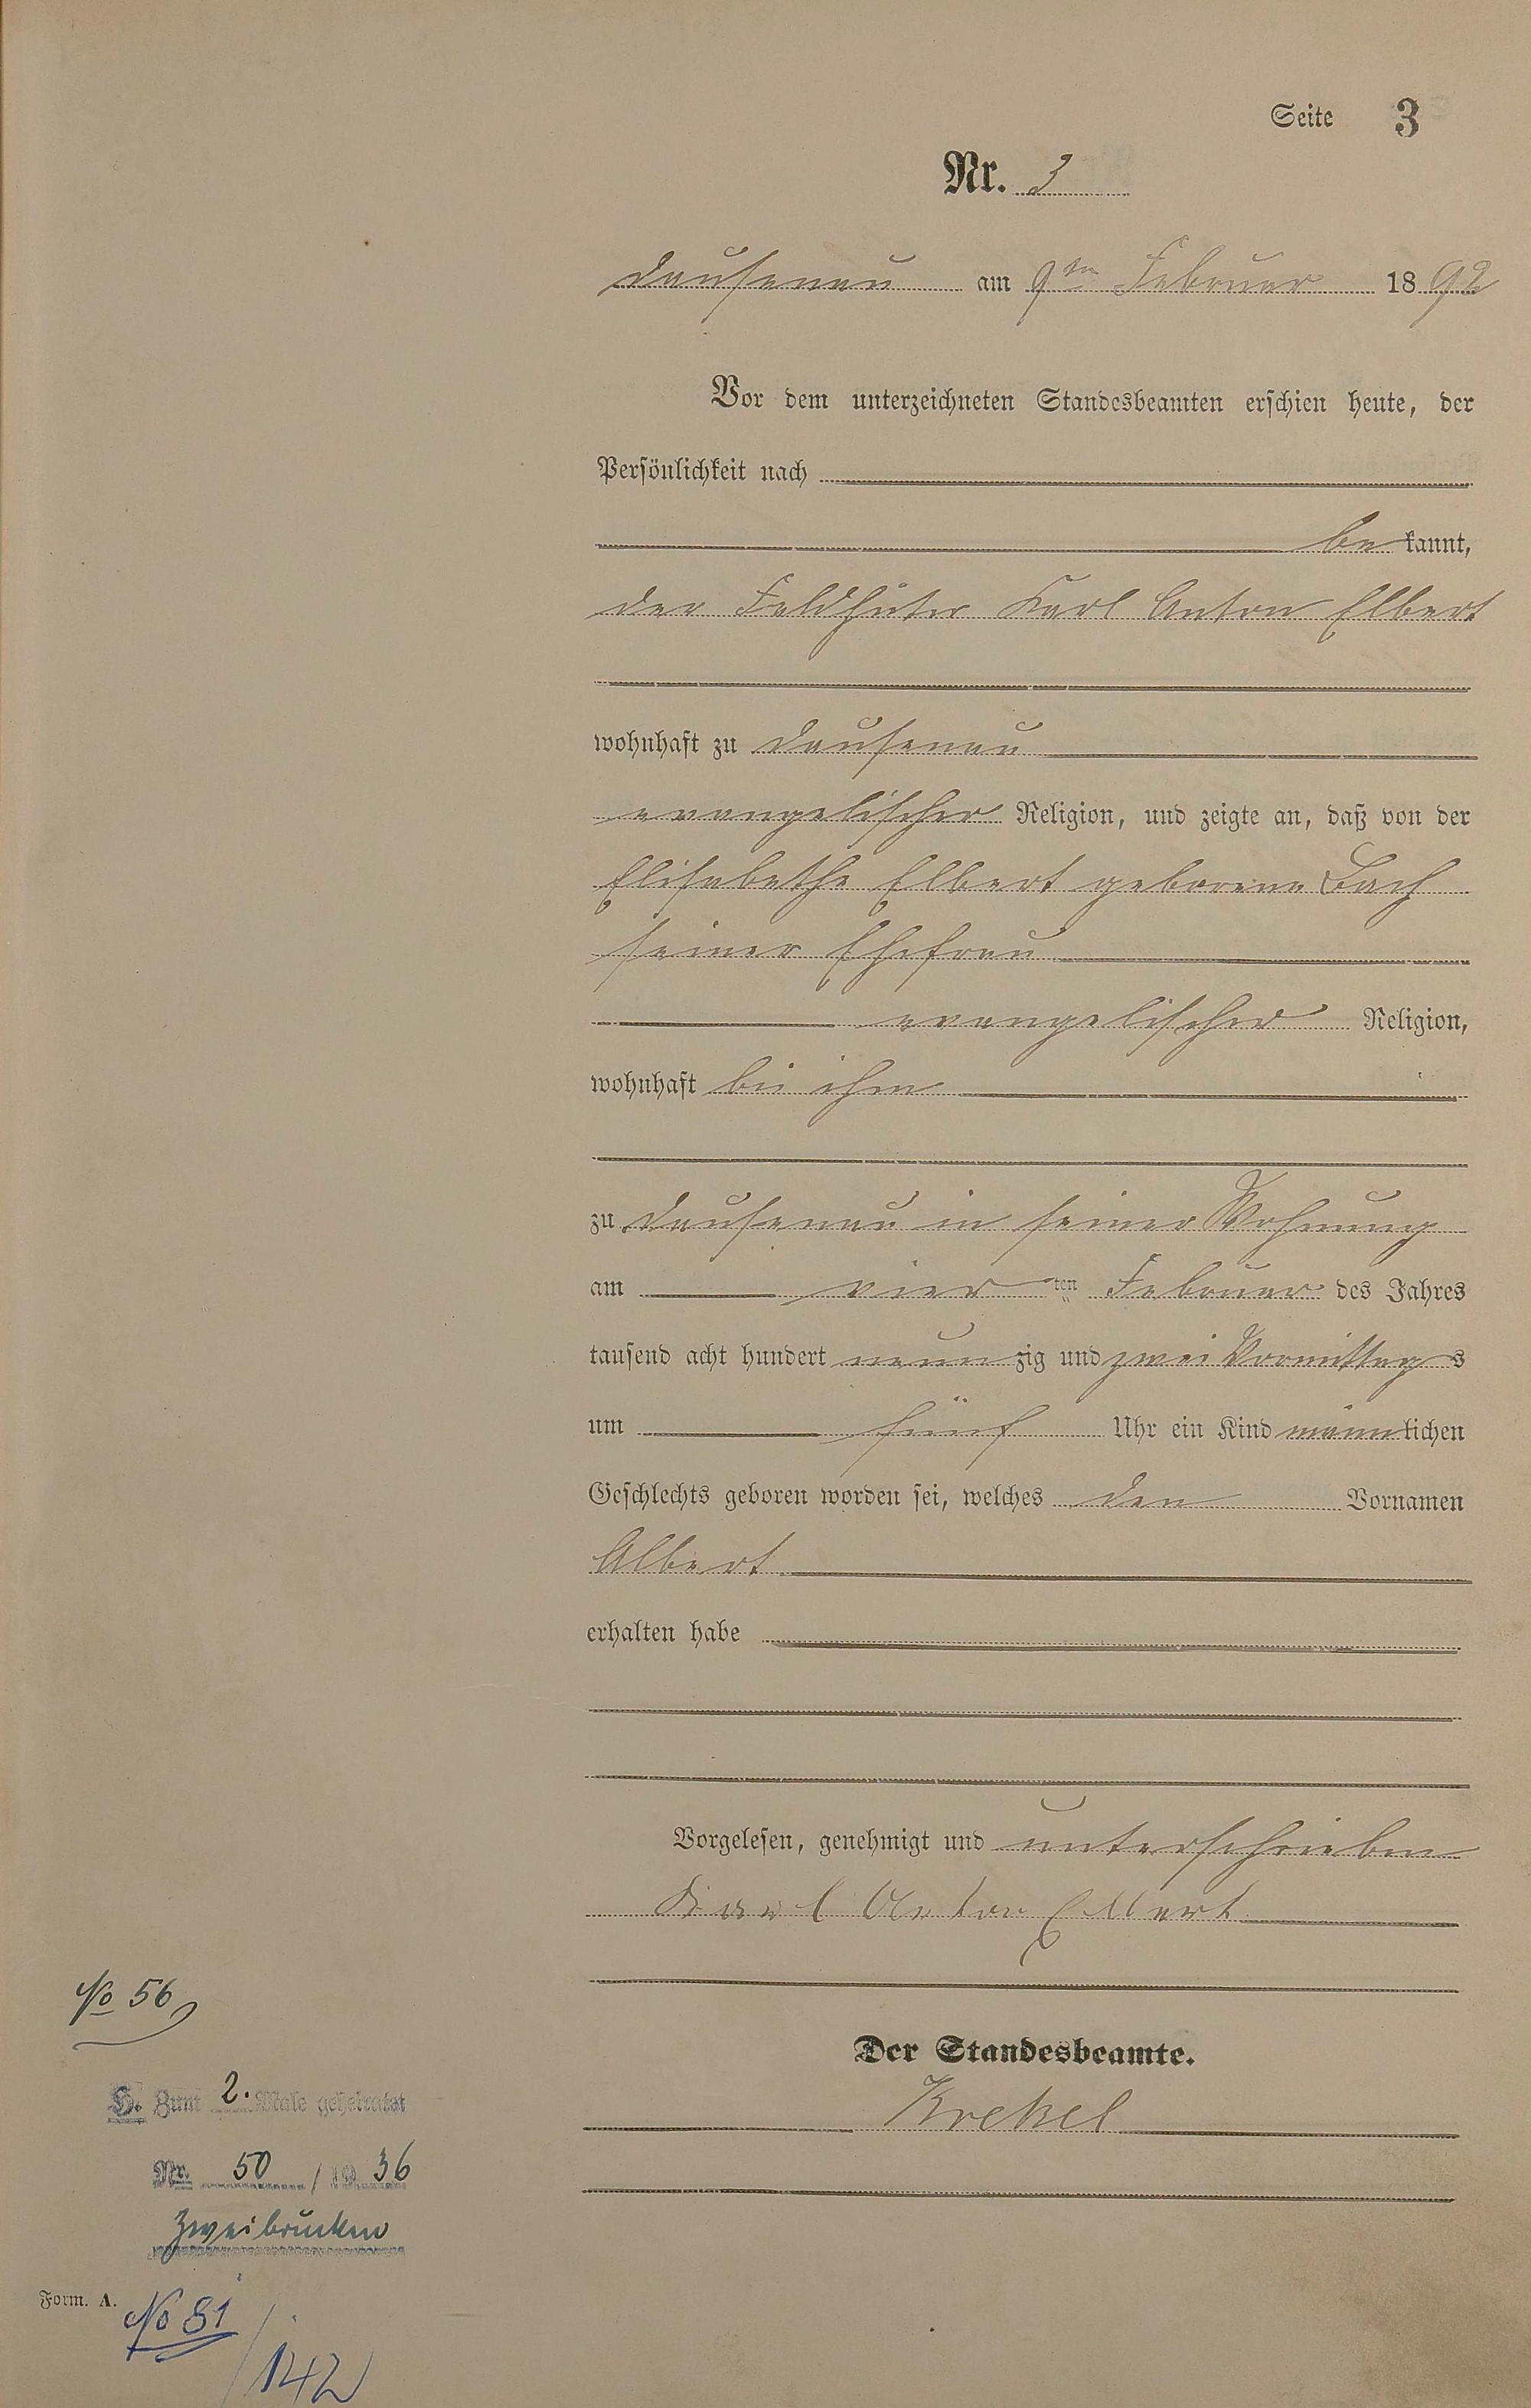 Seite 3
Nr. 3
Dausenau am 9ten Februar 1892
Vor dem unterzeichneten Standesbeamten erschien heute, der
Persönlichkeit nach
be kannt,
der Feldhüter Karl Anton Elbert
wohnhaft zu Dausenau
evangelischer Religion, und zeigte an, daß von der
Elisabethe Elbert geborene Bach
seiner Ehefrau
evangelischer Religion,
wohnhaft bei ihm
zu Dausenau in seiner Wohnung
am vier ten Februar des Jahres
tausend acht hundert neun zig und zwei Vormittags
um fünf Uhr ein Kind männlichen
Geschlechts geboren worden sei, welches den Vornamen
Albert
erhalten habe
Vorgelesen, genehmigt und unterschrieben
Karl Anton Elbert
Der Standesbeamte.
Krekel
No 56
H. Zum 2. Male geheiratet
Nr. 50 / 1936
Zweibrücken
Form. A.
No 81
/142